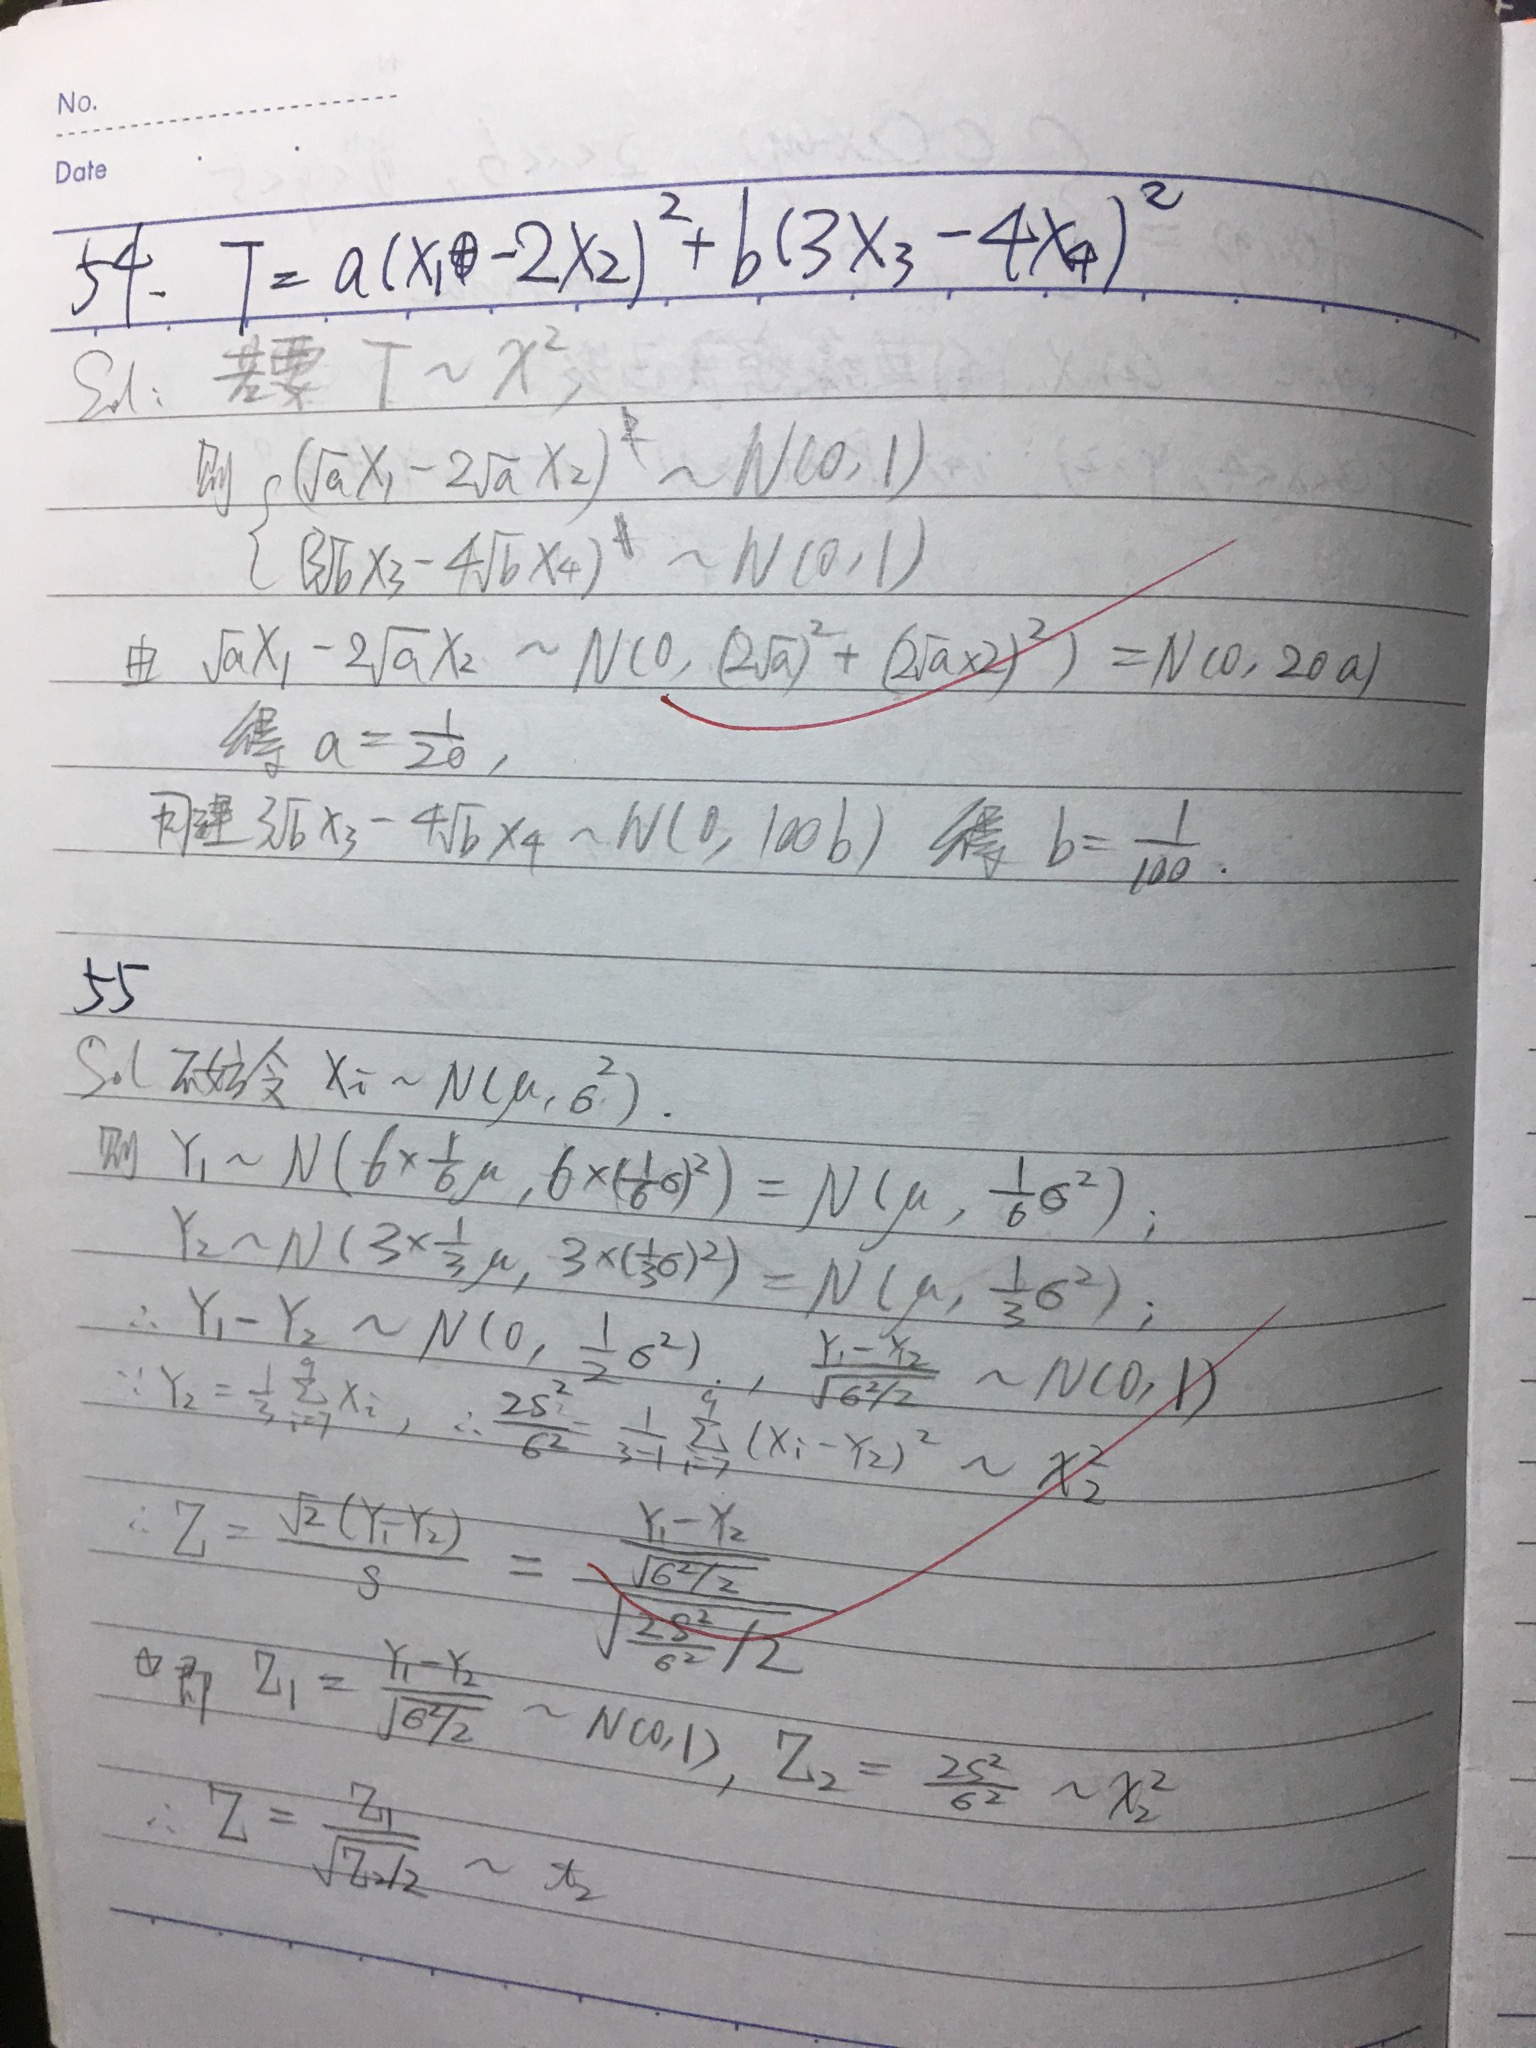 No.
Date
54. T = a(X₁ - 2X₂)² + b(3X₃ - 4X₄)²
Sol: 若要 T ~ χ²,
则 { (√a X₁ - 2√a X₂) ~ N(0, 1)
(3√b X₃ - 4√b X₄) ~ N(0, 1)
由 √a X₁ - 2√a X₂ ~ N(0, (2√a)² + (2√a×2)²) = N(0, 20a)
得 a = 1/20,
同理 3√b X₃ - 4√b X₄ ~ N(0, 100b) 得 b = 1/100.
55
Sol 不妨令 Xi ~ N(μ, σ²).
则 Y₁ ~ N(6×1/6 μ, 6×(1/6 σ)²) = N(μ, 1/6 σ²);
Y₂ ~ N(3×1/3 μ, 3×(1/3 σ)²) = N(μ, 1/3 σ²);
∴ Y₁ - Y₂ ~ N(0, 1/2 σ²), (Y₁ - Y₂)/√(σ²/2) ~ N(0, 1)
∵ Y₂ = 1/3 Σ_{i=7}^{9} Xi, ∴ 2S²/σ² = 1/(3-1) Σ_{i=7}^{9} (Xi - Y₂)² ~ χ²₂
∴ Z = √2 (Y₁ - Y₂)/S = ((Y₁ - Y₂)/√(σ²/2)) / √((2S²/σ²)/2)
即 Z₁ = (Y₁ - Y₂)/√(σ²/2) ~ N(0, 1), Z₂ = 2S²/σ² ~ χ²₂
∴ Z = Z₁/√(Z₂/2) ~ t₂